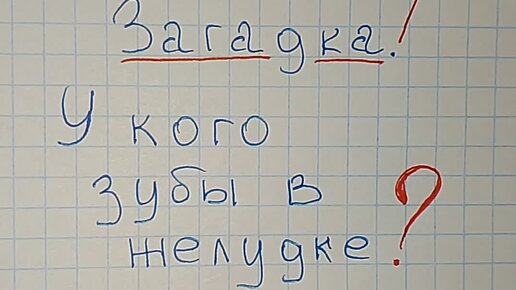 Загадка!
У кого
зубы в
желудке?